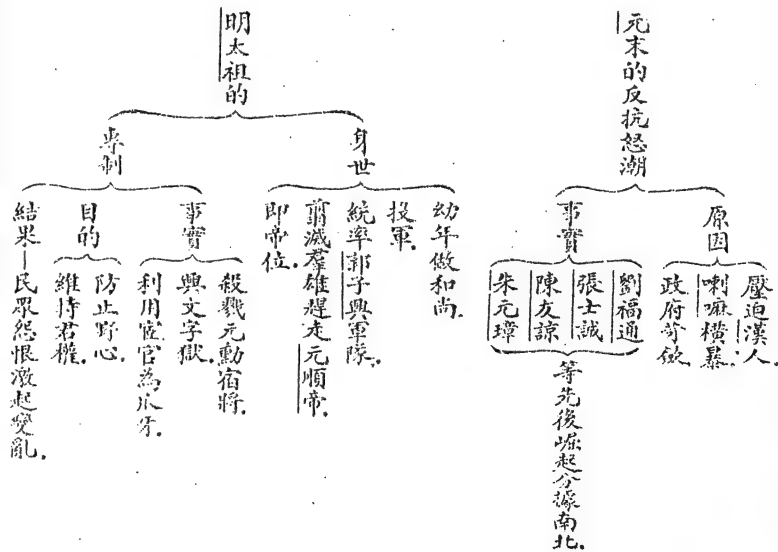 元末的反抗怒潮
原因
壓迫漢人.
喇嘛橫暴.
政府苛歛.
事實
劉福通
張士誠
陳友諒
朱元璋
等先後崛起分據南北.
明太祖的
身世
幼年做和尚.
投軍.
統率郭子興軍隊.
翦滅羣雄趕走元順帝.
即帝位.
專制
事實
殺戮元勳宿將.
興文字獄.
利用宦官為爪牙.
目的
防止野心.
維持君權.
結果—民眾怨恨激起變亂.